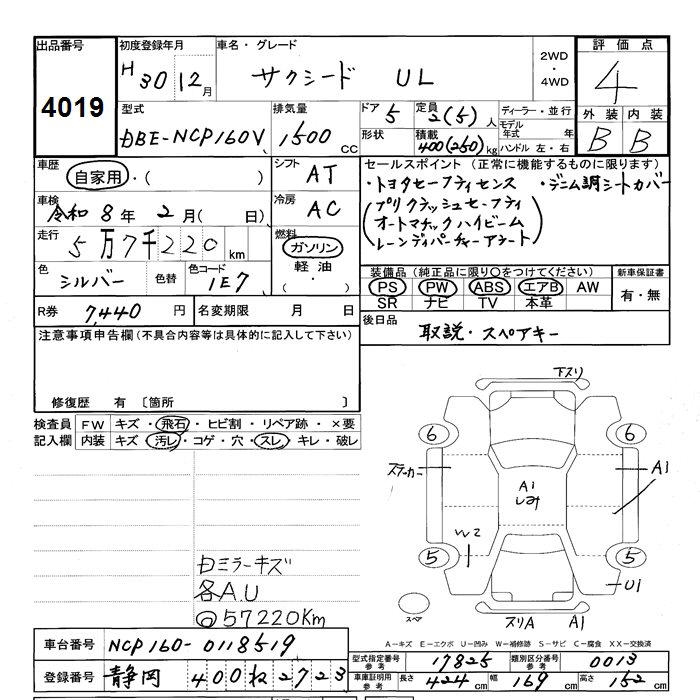 出品番号 4019
初度登録年月 H30 12月
車名・グレード サクシード UL
2WD・4WD
評価点 4
外装 B 内装 B
型式 DBE-NCP160V
排気量 1500 CC
ドア 5
形状
定員 2(5)人
積載 400(250)kg
ディーラー・並行
モデル年式 年
ハンドル 左・右
車歴 自家用・( )
シフト AT
車検 令和8年2月( 日)
冷房 AC
走行 5万7千220km
燃料 ガソリン 軽油・( ・ )
色 シルバー 色替 色コード 1E7
セールスポイント (正常に機能するものに限ります)
・トヨタセーフティセンス ・デニム調シートカバー
(プリクラッシュセーフティ
オートマチックハイビーム
レーンディパーチャーアラート)
装備品(純正品に限り○をつけてください)
PS PW ABS エアB AW
SR ナビ TV 本革
新車保証書 有・無
R券 7,440円
名変期限 月 日
後日品 取説・スペアキー
注意事項申告欄(不具合内容等は具体的に記入して下さい)
修復歴 有 〔箇所 〕
検査員記入欄
FW キズ・飛石・ヒビ割・リペア跡・×要
内装 キズ・汚レ・コゲ・穴・スレ・キレ・破レ
ミラーキズ
各A.U
57220Km
下スリ
6 6
ステッカー
A1
A1
しみ
W2
5 5
U1
スペア
スリA A1
A-キズ E-エクボ U-凹み W-補修跡 S-サビ C-腐食 XX-交換済
車台番号 NCP160-0118519
登録番号 静岡 400 ね 2723
型式指定番号 参考 17825
類別区分番号 参考 0013
車庫証明用 参考 長さ 424cm 幅 169cm 高さ 152cm